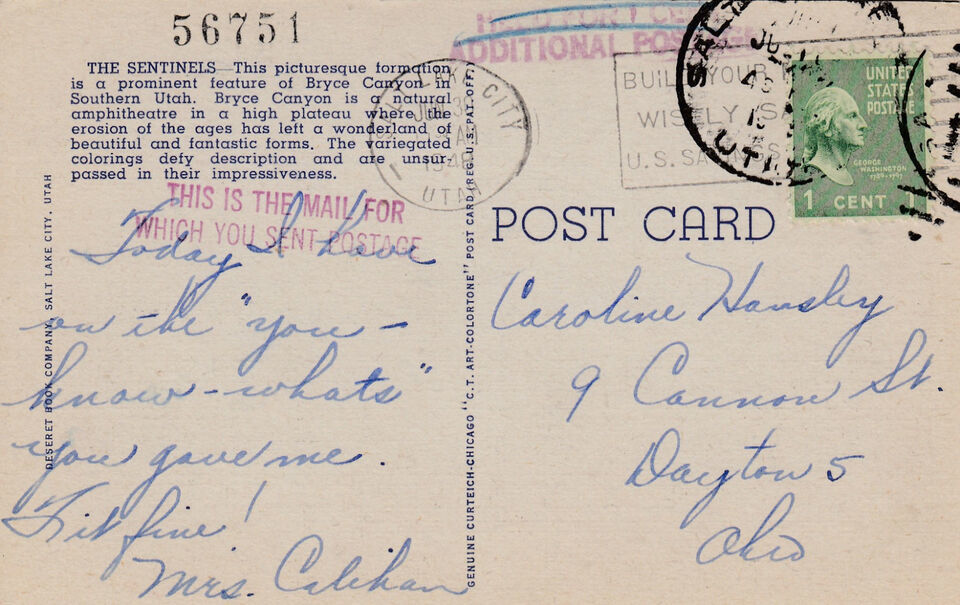 56751
THE SENTINELS—This picturesque formation
is a prominent feature of Bryce Canyon in
Southern Utah. Bryce Canyon is a natural
amphitheatre in a high plateau where the
erosion of the ages has left a wonderland of
beautiful and fantastic forms. The variegated
colorings defy description and are unsur-
passed in their impressiveness.
THIS IS THE MAIL FOR
WHICH YOU SENT POSTAGE
Today I have
on the "you-
know-whats"
you gave me.
Fit fine!
Mrs. Calihan
DESERET BOOK COMPANY, SALT LAKE CITY, UTAH
GENUINE CURTEICH-CHICAGO "C.T. ART-COLORTONE" POST CARD (REG. U.S. PAT. OFF.)
HELD FOR 1 CENT
ADDITIONAL POSTAGE
LAKE CITY
JUN
AM
UTAH
BUILD YOUR
WISELY
U.S. SAVINGS
SALT
UTAH
UNITED
STATES
POSTAGE
GEORGE
WASHINGTON
1789-1797
1 CENT 1
POST CARD
Caroline Hansley
9 Cannon St.
Dayton 5
Ohio